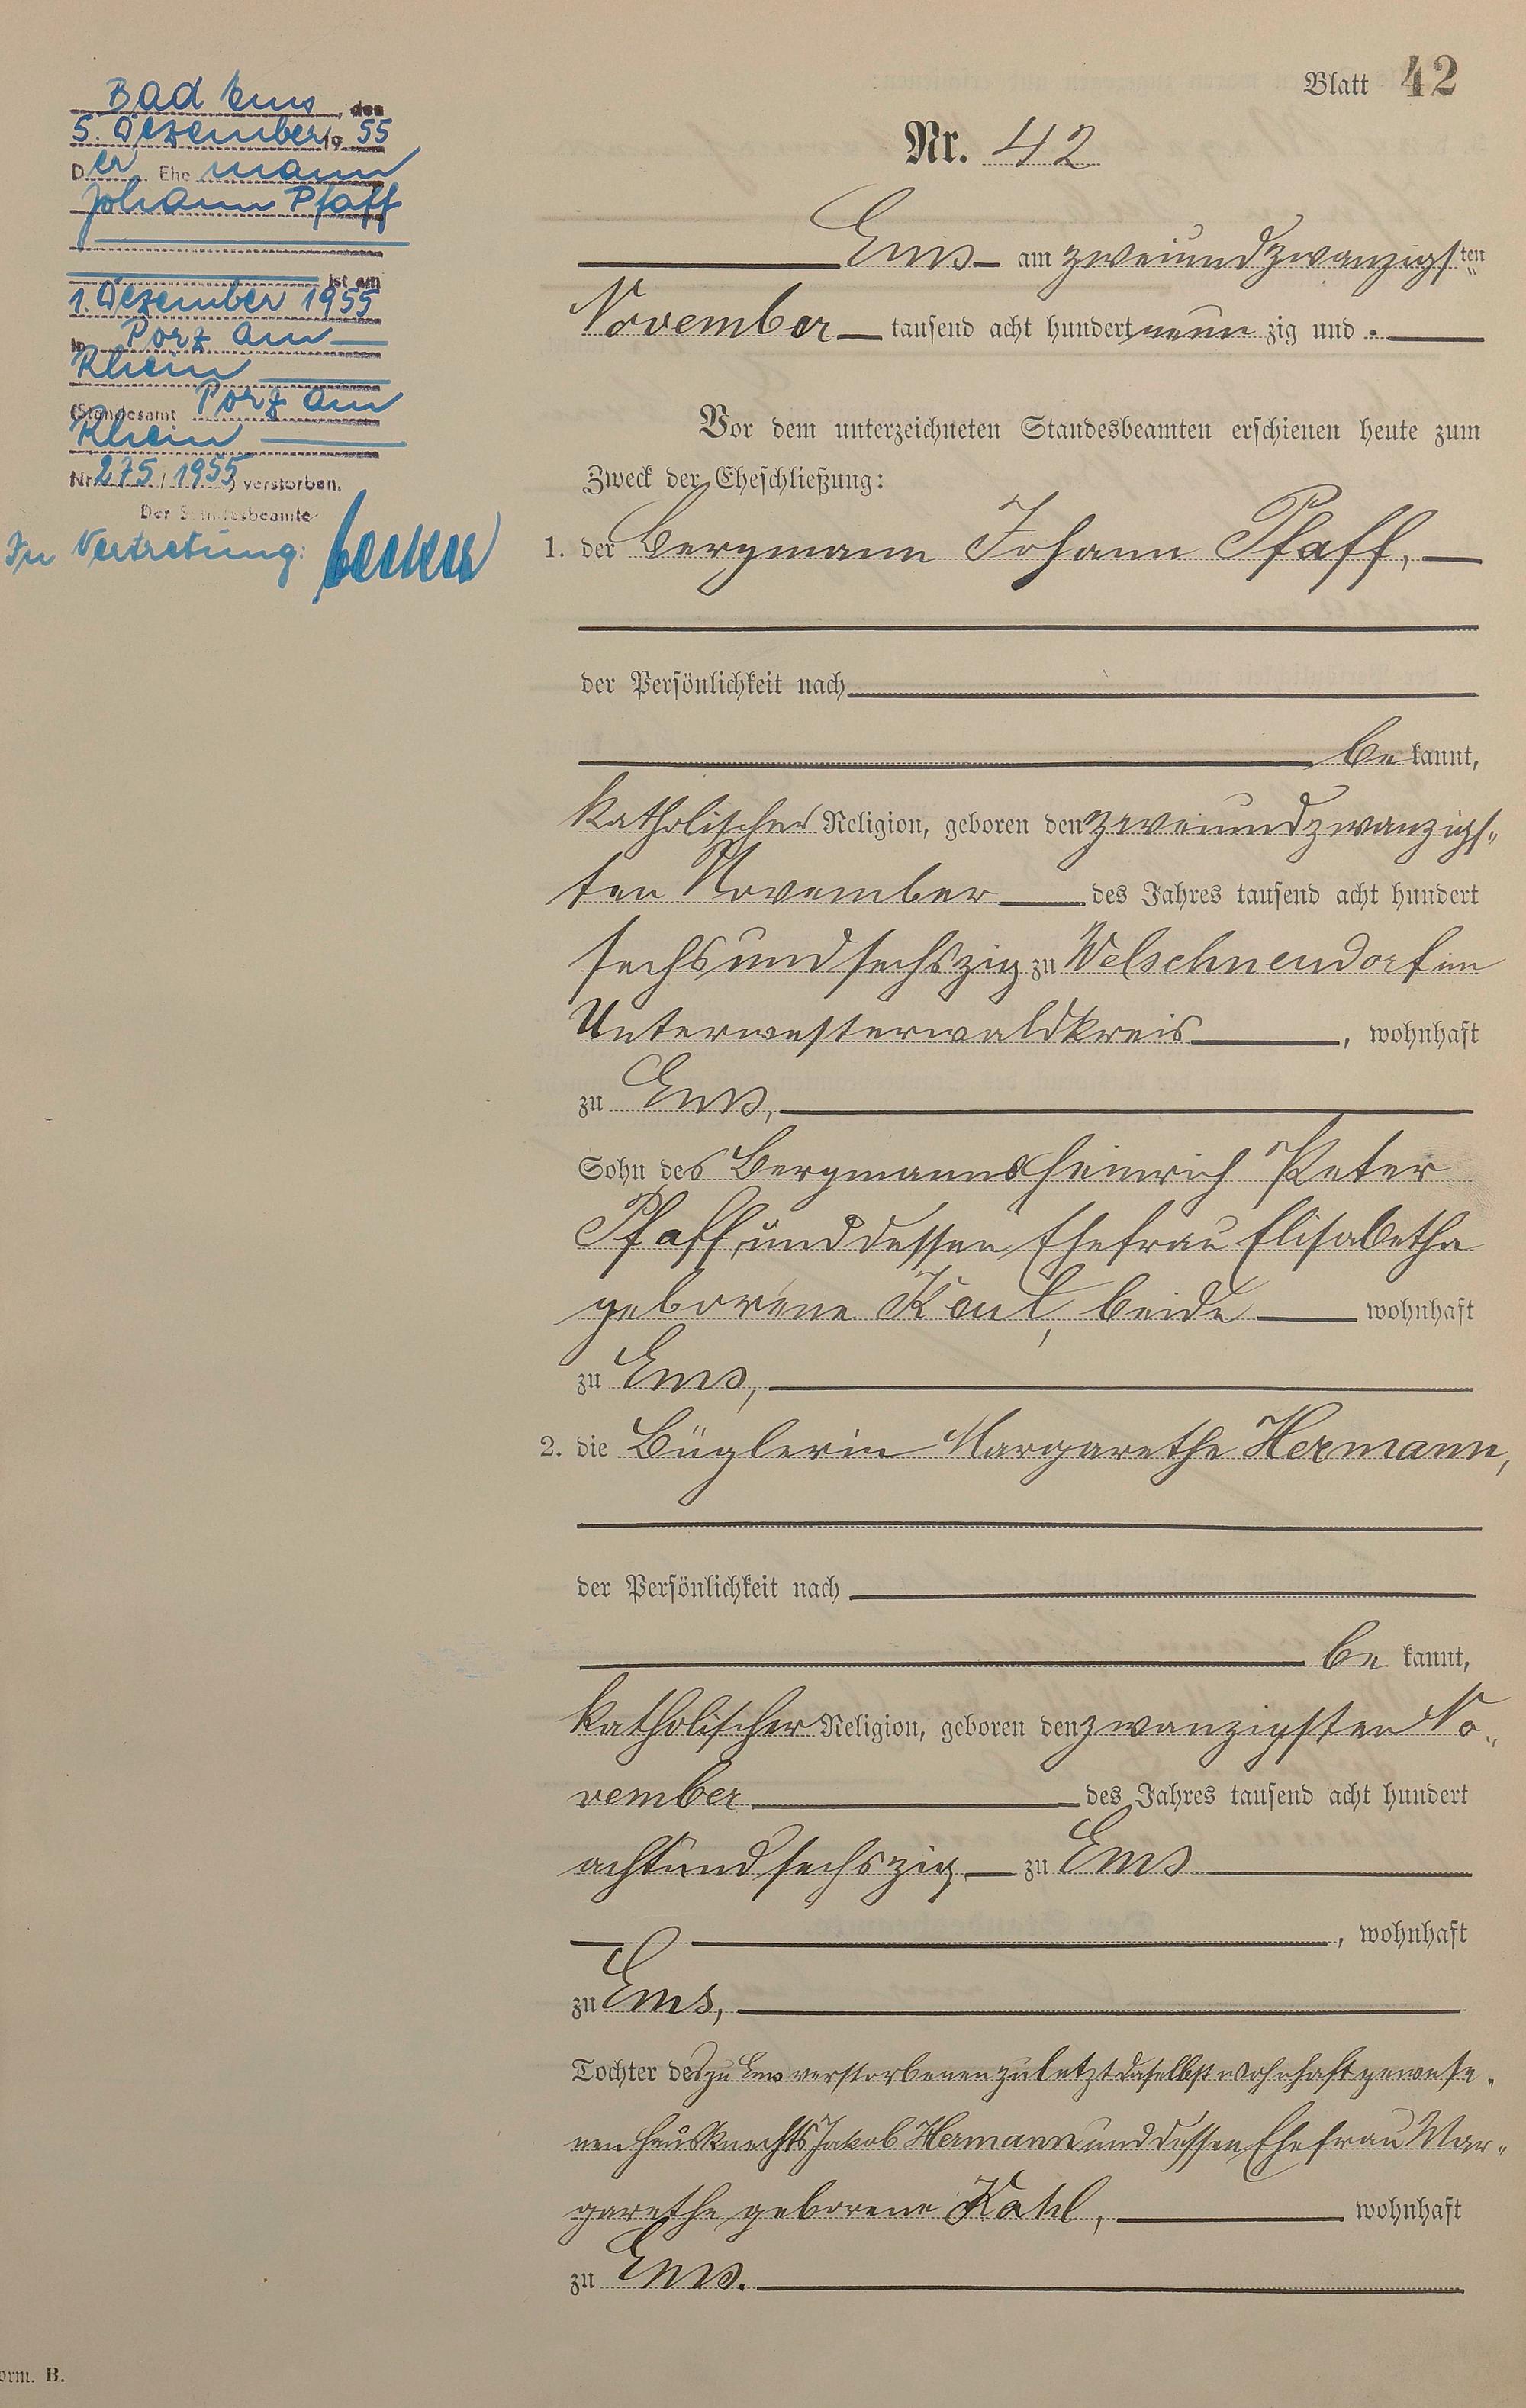 Blatt 42
Nr. 42
Ems am zweiundzwanzigsten
November tausend acht hundert neun zig und
Vor dem unterzeichneten Standesbeamten erschienen heute zum
Zweck der Eheschließung:
1. der Bergmann Johann Pfaff,
der Persönlichkeit nach
be kannt,
katholischer Religion, geboren den zweiundzwanzigs-
ten November des Jahres tausend acht hundert
sechsundsechszig zu Welschneudorf im
Unterwesterwaldkreis, wohnhaft
zu Ems,
Sohn des Bergmanns Heinrich Peter
Pfaff, und dessen Ehefrau Elisabetha
geborene Keul, beide wohnhaft
zu Ems,
2. die Büglerin Margarethe Hermann,
der Persönlichkeit nach
be kannt,
katholischer Religion, geboren den zwanzigsten No-
vember des Jahres tausend acht hundert
achtundsechszig zu Ems
, wohnhaft
zu Ems,
Tochter des zu Ems verstorbenen zuletzt daselbst wohnhaft gewese-
nen Hausknechts Jakob Hermann und dessen Ehefrau Mar-
garethe geborene wohnhaft
zu Ems.
Bad Ems, den
5. Dezember 19 55
Der Ehe mann
Johann Pfaff
ist am
1. Dezember 1955
in Porz am
Rhein
(Standesamt Porz am
Rhein
Nr. 275/1955) verstorben.
Der Standesbeamte
In Vertretung:
orm. B.